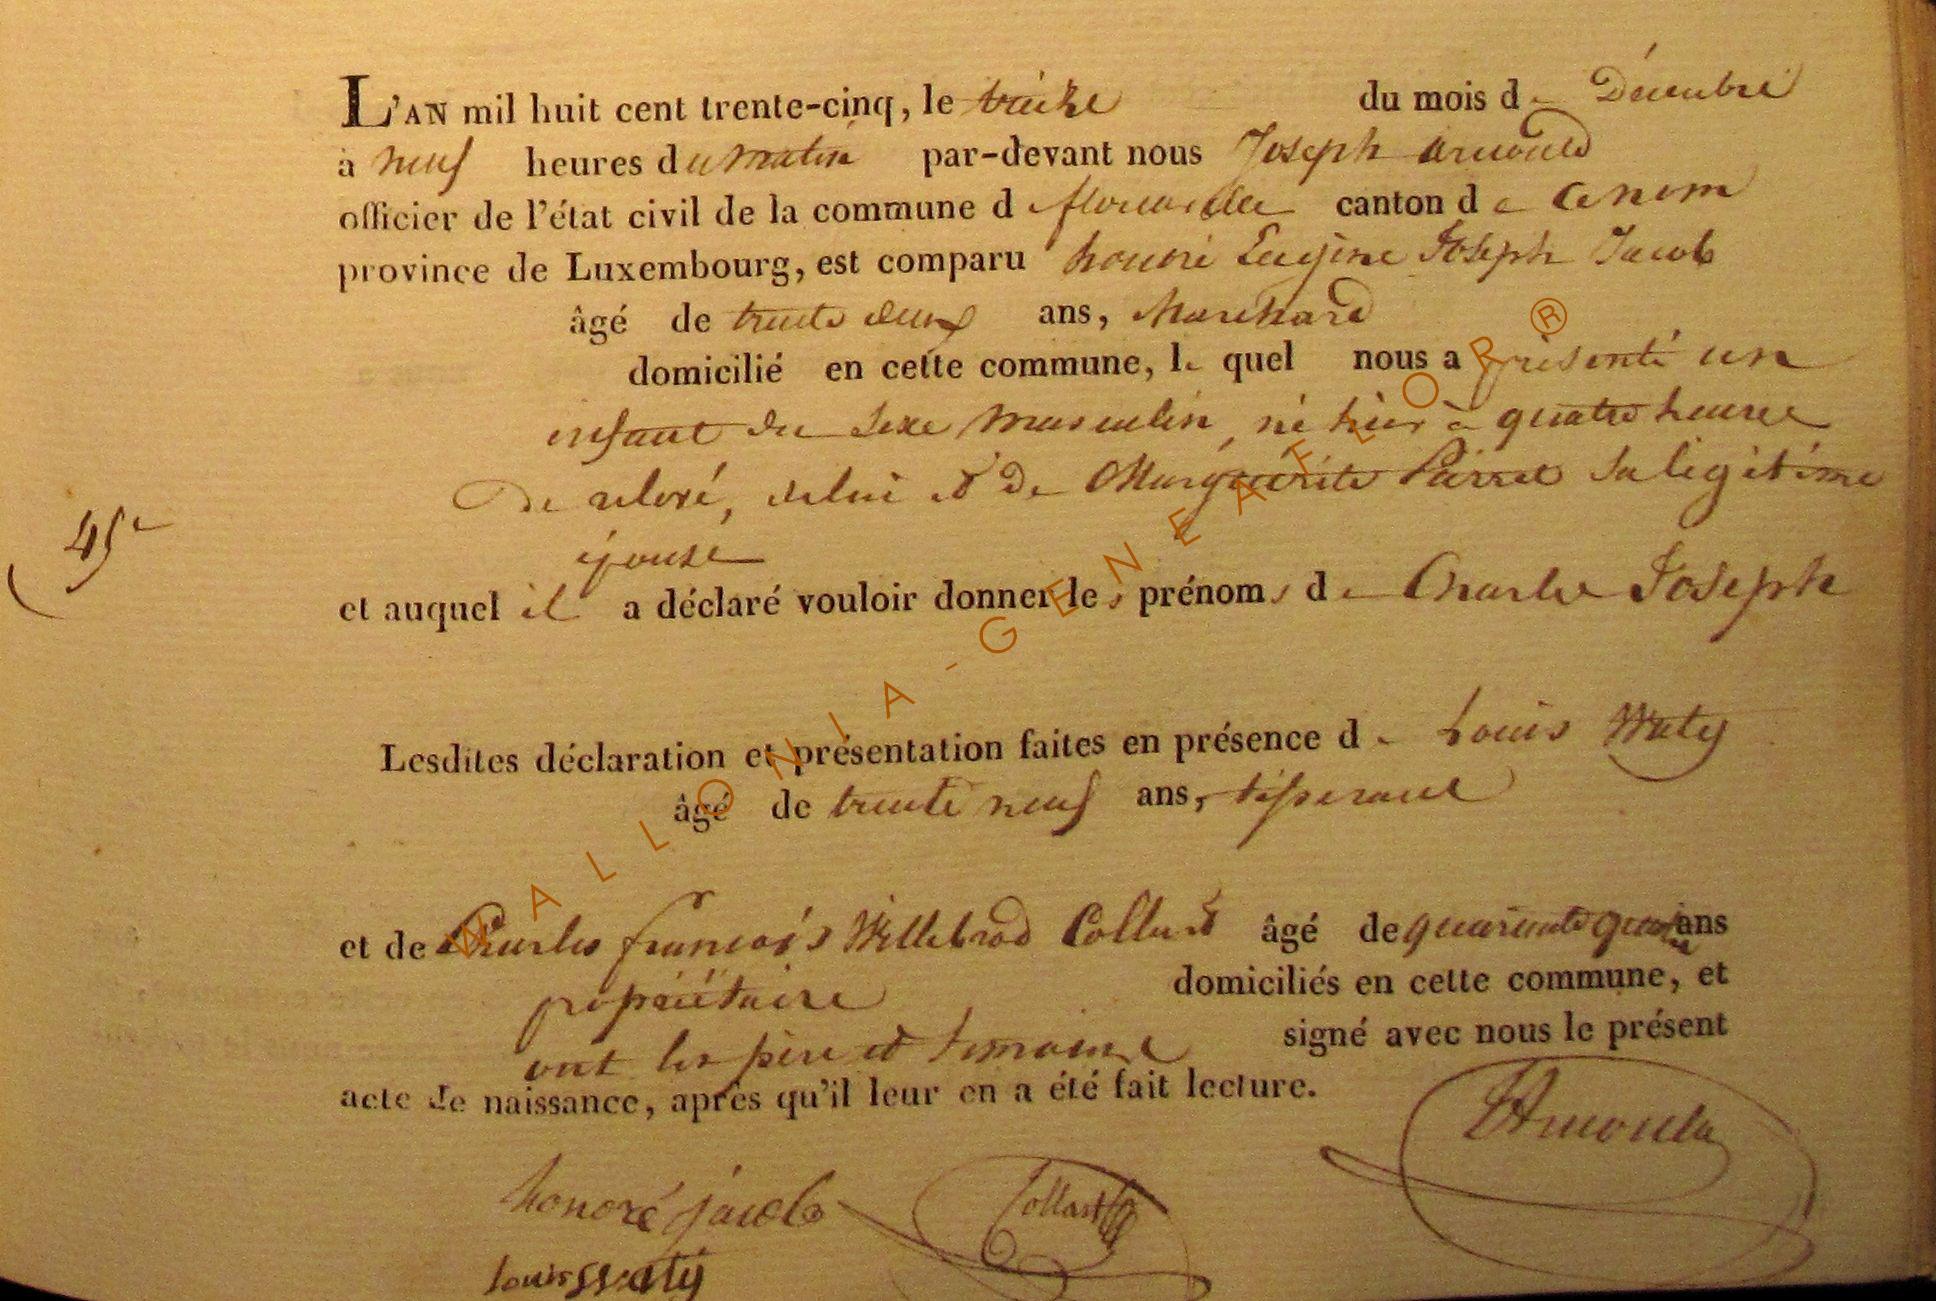 L'AN mil huit cent trente-cinq, le treize du mois de Décembre
à neuf heures du matin par-devant nous Joseph Arnould
officier de l'état civil de la commune de florenville canton de
province de Luxembourg, est comparu honoré Eugène Joseph Jacob
âgé de trente deux ans, Marchand
domicilié en cette commune, le quel nous a présenté un
enfant du sexe masculin, né hier à quatre heures
De relevé, de lui et de Marguerite Pierret sa légitime
épouse
45e
et auquel il a déclaré vouloir donner les prénoms de Charles Joseph
Lesdites déclaration et présentation faites en présence de Louis Waty
âgé de trente neuf ans, tisserand
et de Charles françois Willebrod Collard âgé de quarante quatre ans
propriétaire domiciliés en cette commune, et
ont les père et temoins signé avec nous le présent
acte de naissance, après qu'il leur en a été fait lecture.
JArnould
honoré jacob Collard
louis Waty
WALLONIA-GENEAFLOR ®